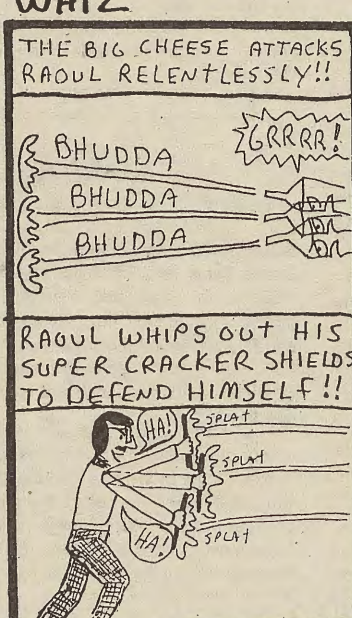 WHIZ
THE BIG CHEESE ATTACKS
RAOUL RELENTLESSLY!!
GRRRR!
BHUDDA
BHUDDA
BHUDDA
RAOUL WHIPS OUT HIS
SUPER CRACKER SHIELDS
TO DEFEND HIMSELF!!
HA!
SPLAT
SPLAT
HA!
SPLAT